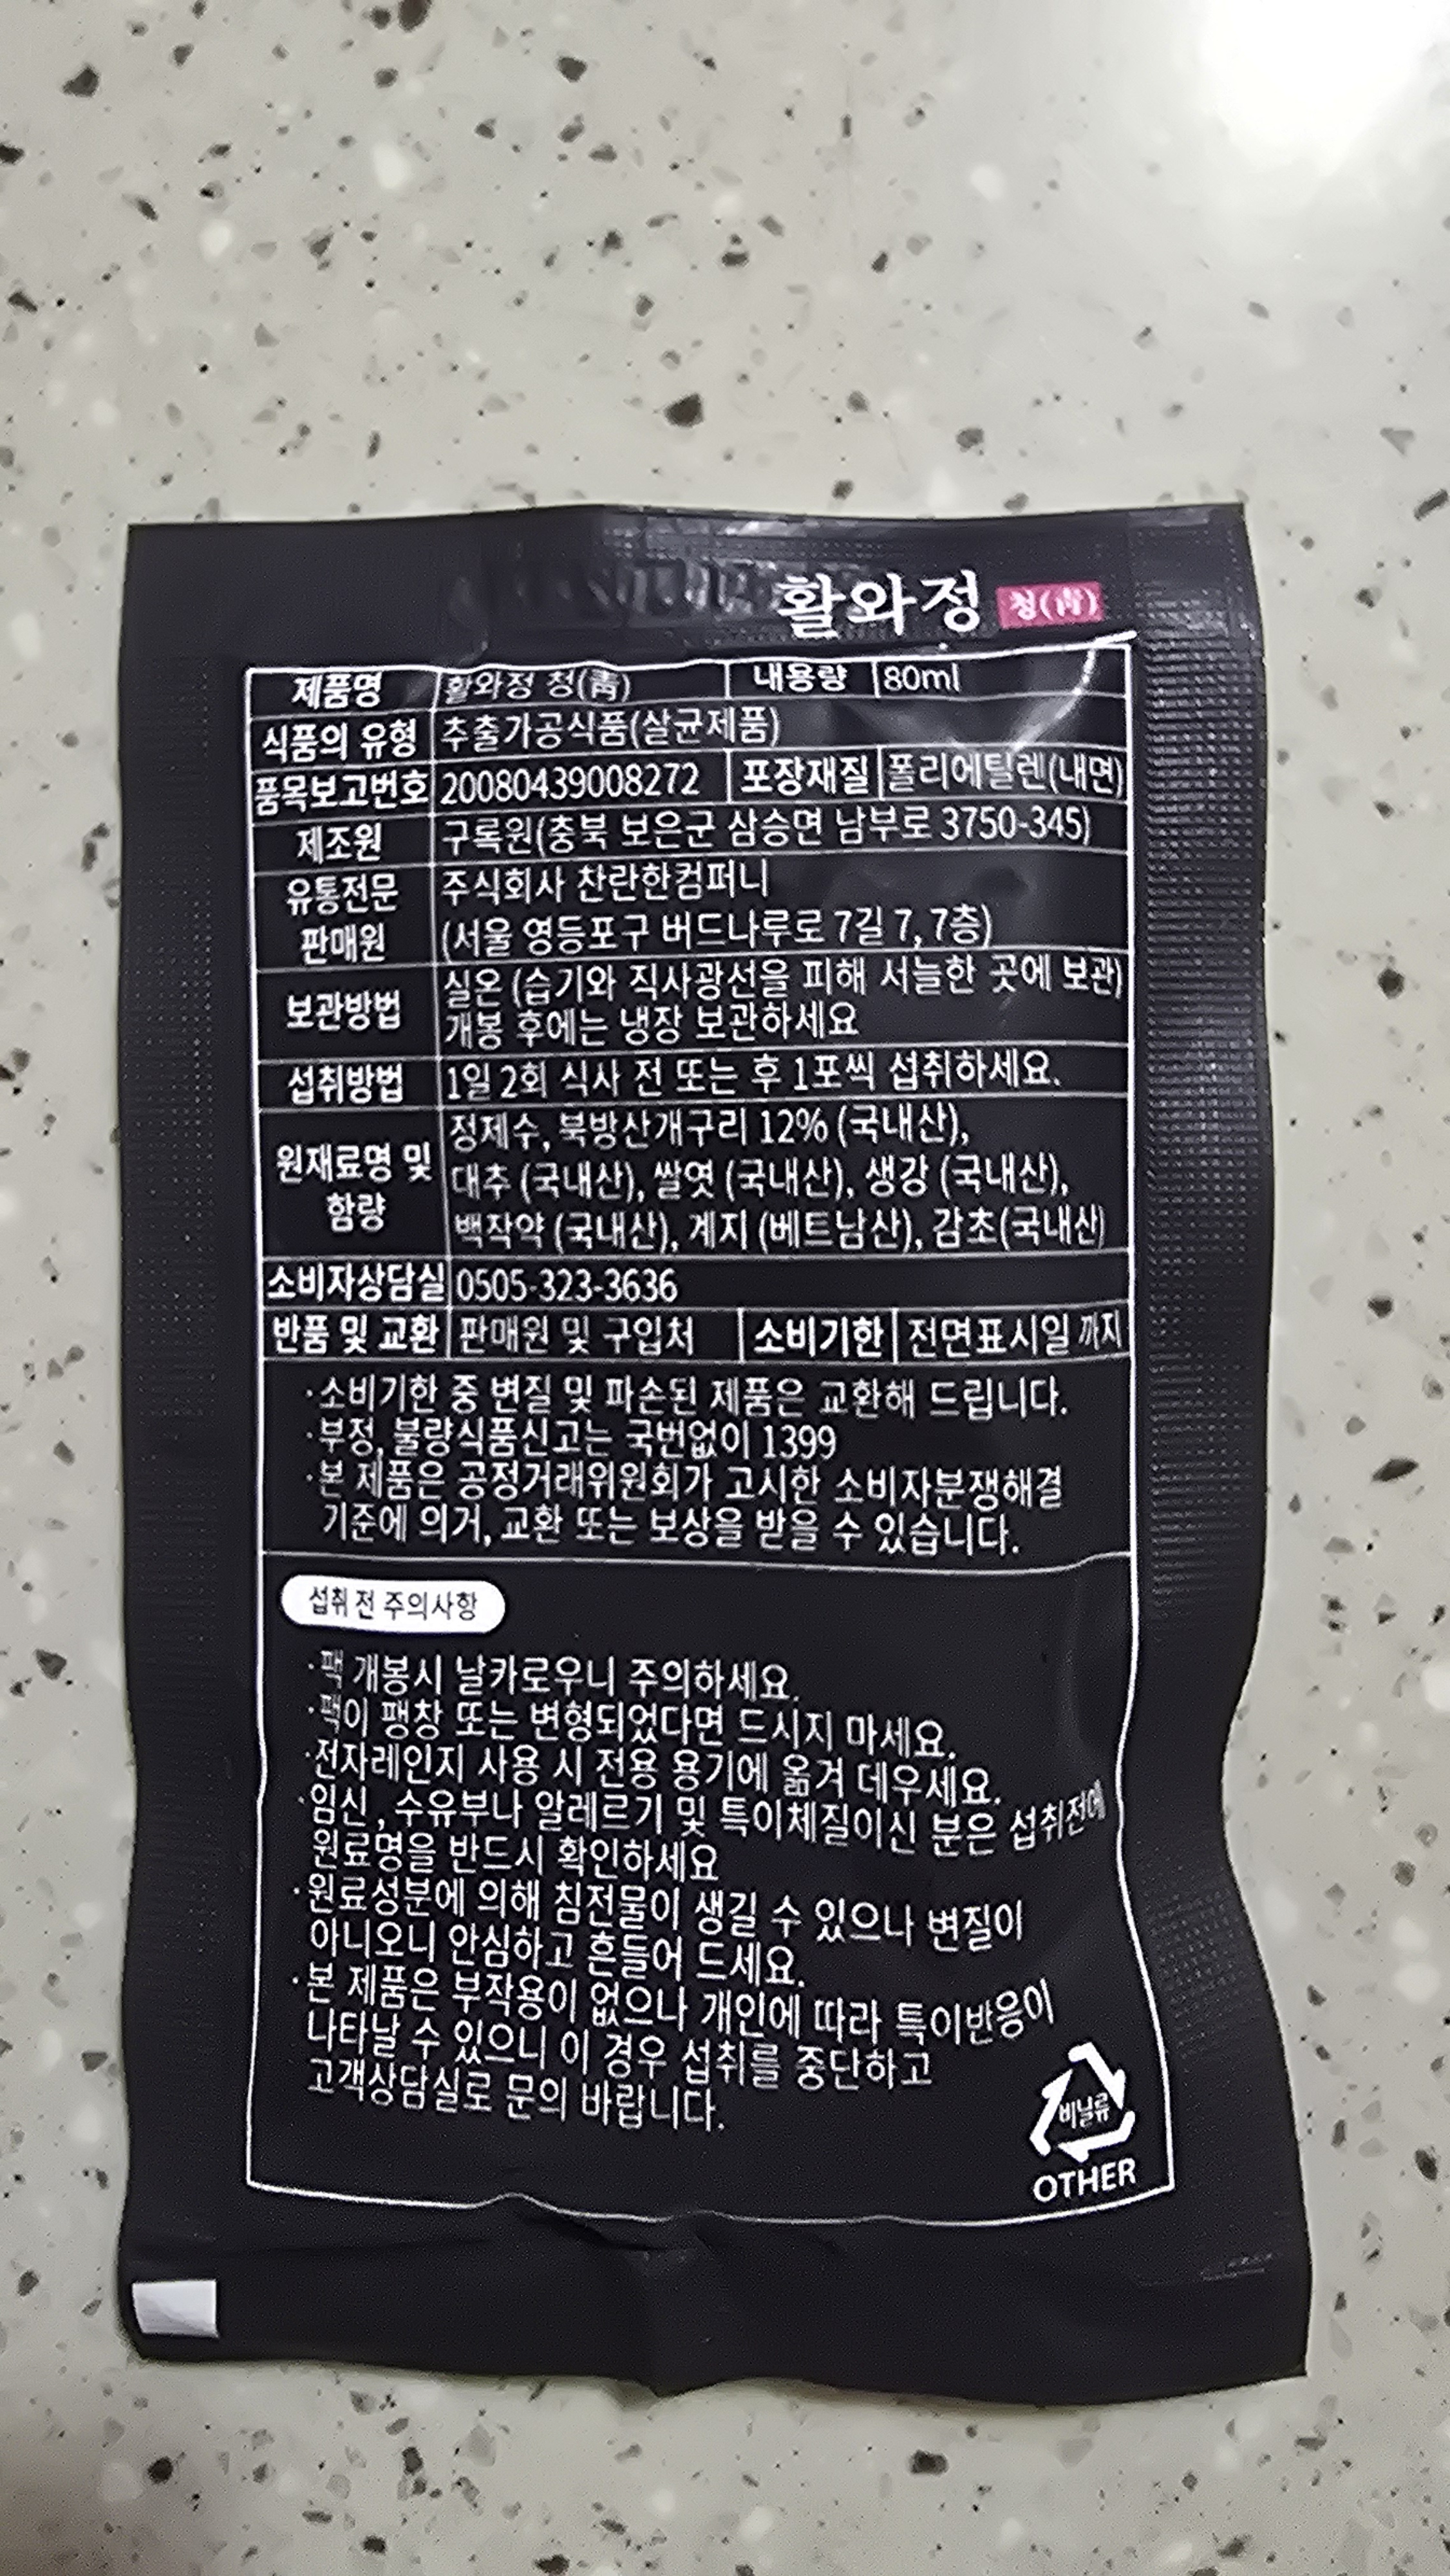 활와정 청(靑)
제품명 활와정 청(靑) 내용량 80ml
식품의 유형 추출가공식품(살균제품)
품목보고번호 20080439008272 포장재질 폴리에틸렌(내면)
제조원 구록원(충북 보은군 삼승면 남부로 3750-345)
유통전문 주식회사 찬란한컴퍼니
판매원 (서울 영등포구 버드나루로 7길 7, 7층)
보관방법 실온 (습기와 직사광선을 피해 서늘한 곳에 보관)
개봉 후에는 냉장 보관하세요
섭취방법 1일 2회 식사 전 또는 후 1포씩 섭취하세요.
원재료명 및 함량 정제수, 북방산개구리 12% (국내산),
대추 (국내산), 쌀엿 (국내산), 생강 (국내산),
백작약 (국내산), 계지 (베트남산), 감초(국내산)
소비자상담실 0505-323-3636
반품 및 교환 판매원 및 구입처 소비기한 전면표시일 까지
·소비기한 중 변질 및 파손된 제품은 교환해 드립니다.
·부정, 불량식품신고는 국번없이 1399
·본 제품은 공정거래위원회가 고시한 소비자분쟁해결
기준에 의거, 교환 또는 보상을 받을 수 있습니다.
섭취 전 주의사항
·팩 개봉시 날카로우니 주의하세요.
·팩이 팽창 또는 변형되었다면 드시지 마세요.
·전자레인지 사용 시 전용 용기에 옮겨 데우세요.
·임신 , 수유부나 알레르기 및 특이체질이신 분은 섭취전에
원료명을 반드시 확인하세요
·원료성분에 의해 침전물이 생길 수 있으나 변질이
아니오니 안심하고 흔들어 드세요.
·본 제품은 부작용이 없으나 개인에 따라 특이반응이
나타날 수 있으니 이 경우 섭취를 중단하고
고객상담실로 문의 바랍니다.
비닐류
OTHER